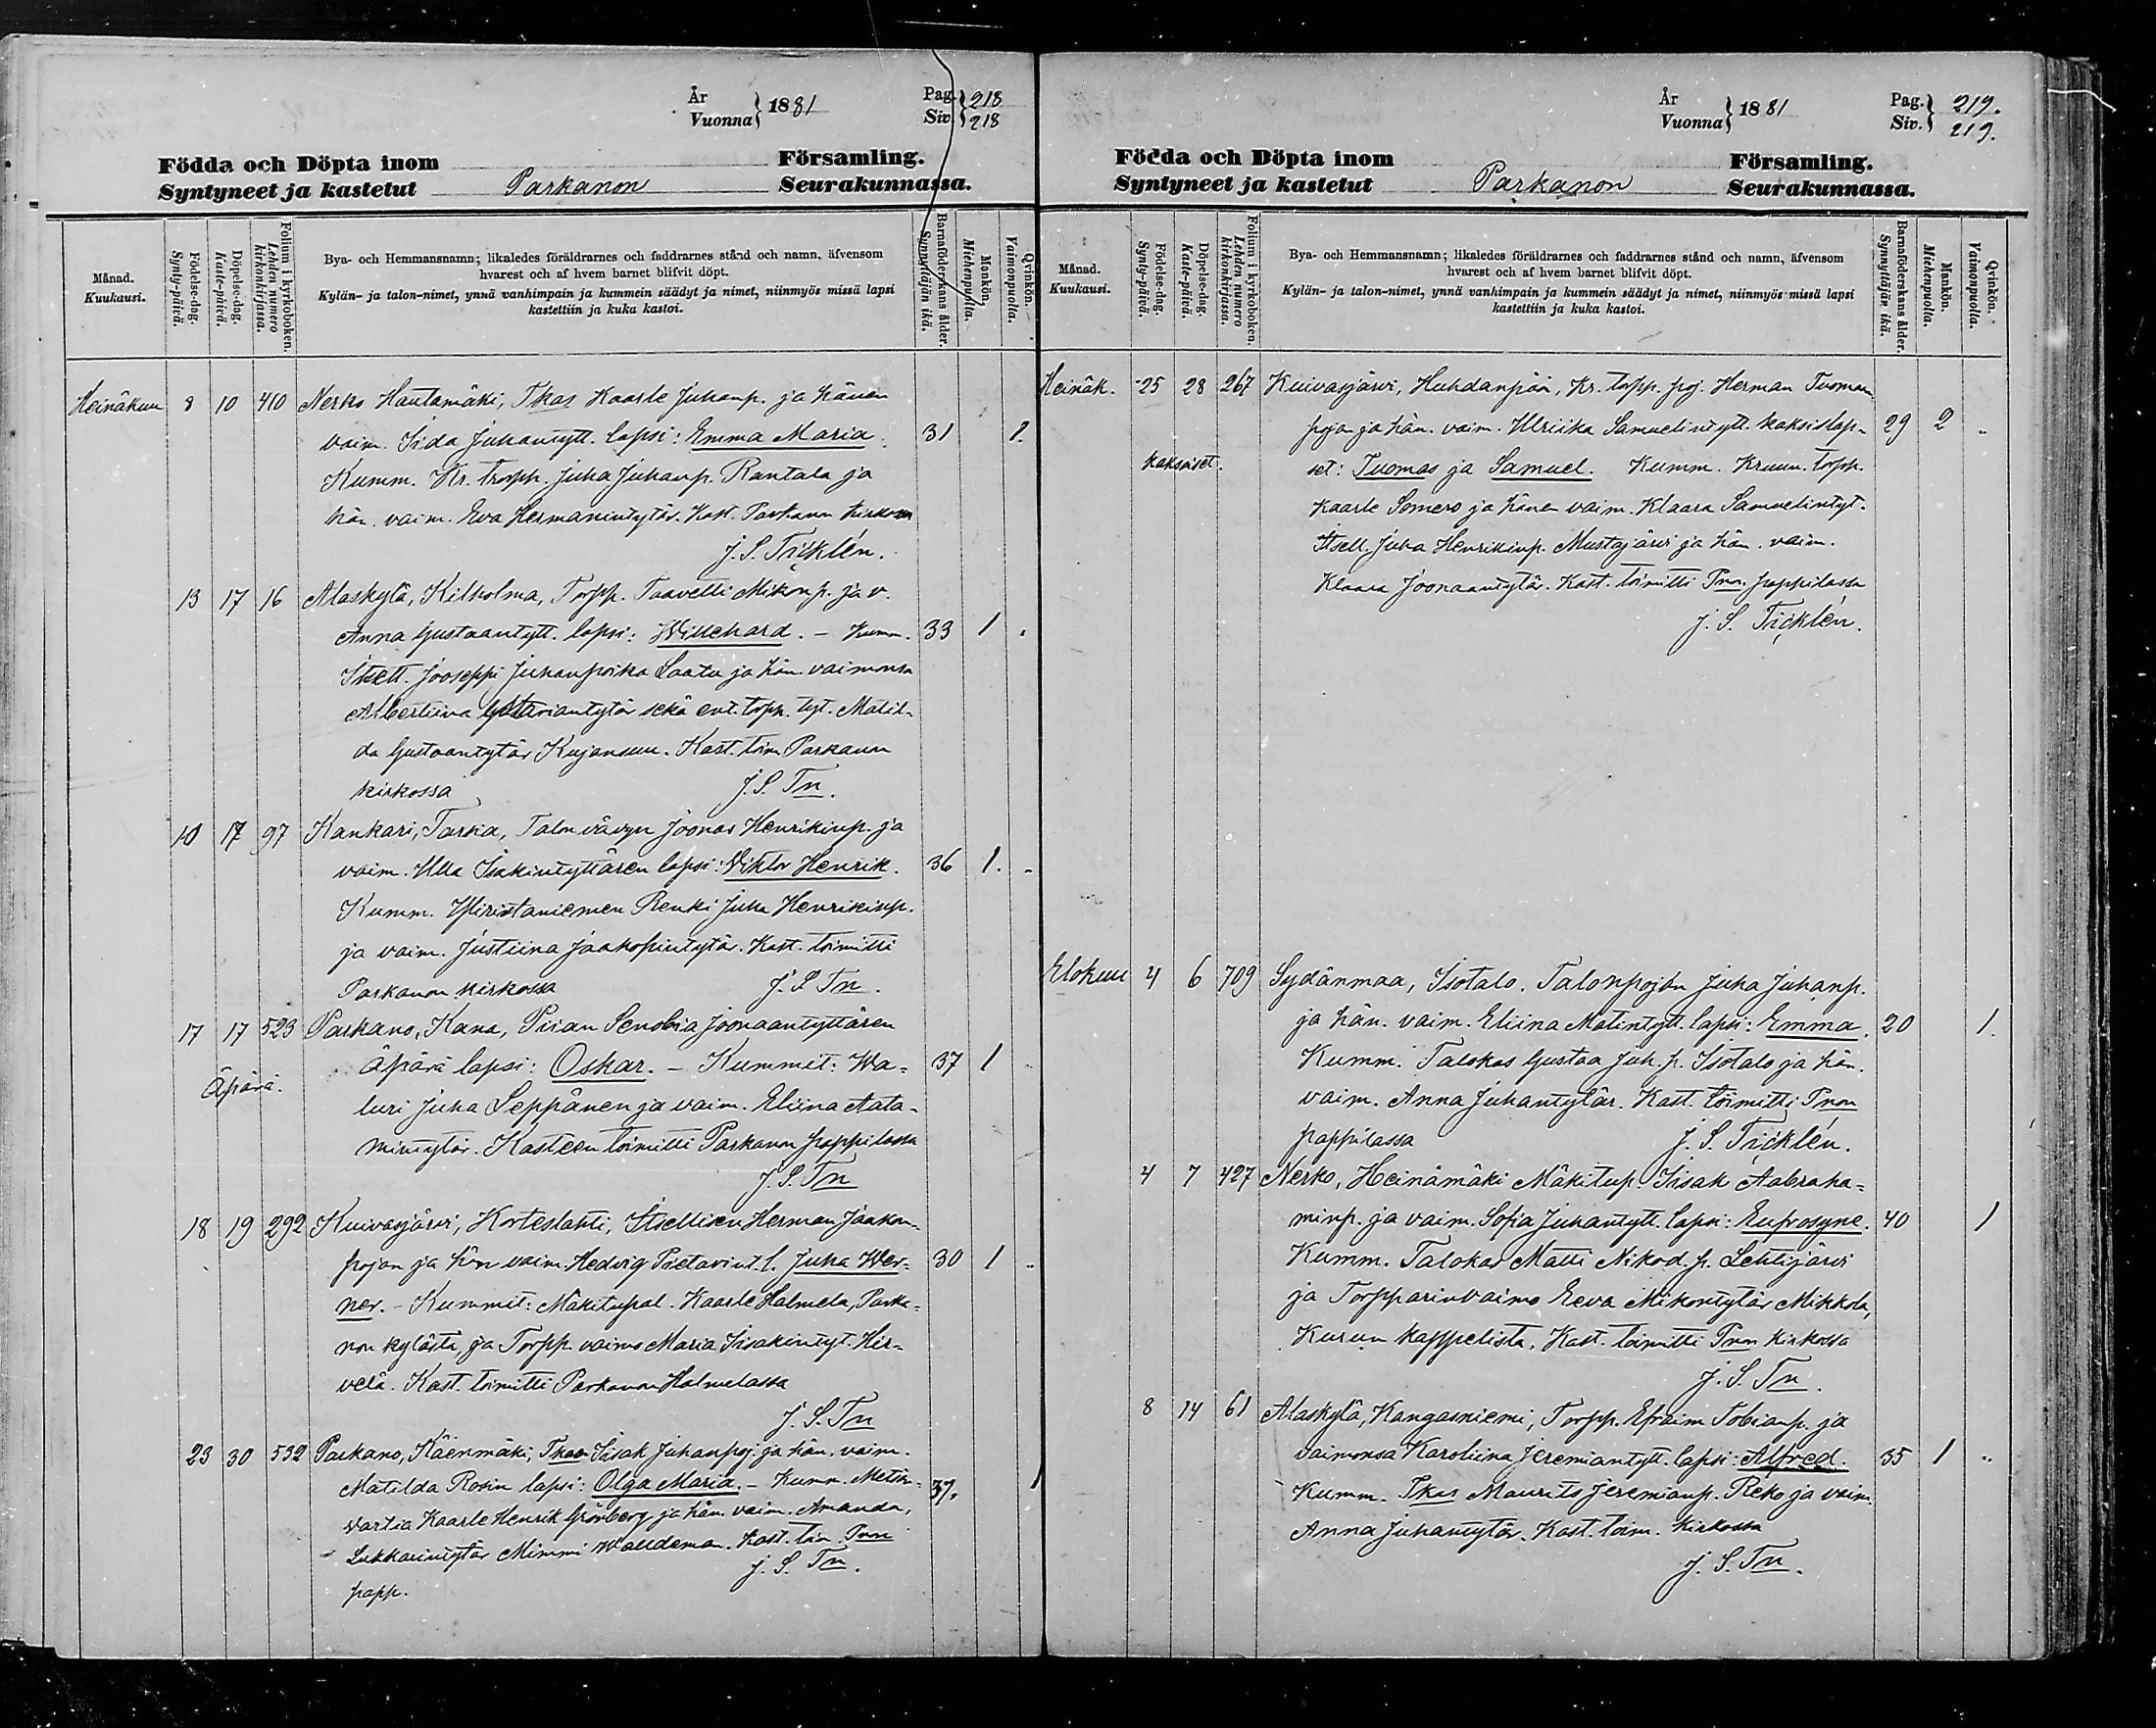 År
Vuonna } 1881
Pag. } 218
Siv. } 218
Födda och Döpta inom Församling.
Syntyneet ja kastetut Parkanon Seurakunnassa.
Månad.
Kuukausi.
Födelse-dag.
Synty-päivä.
Döpelse-dag.
Kaste-päivä.
Folium i kyrkoboken.
Lehden numero
kirkonkirjassa.
Bya- och Hemmansnamn; likaledes föräldrarnes och faddrarnes stånd och namn, äfvensom
hvarest och af hvem barnet blifvit döpt.
Kylän- ja talon-nimet, ynnä vanhimpain ja kummein säädyt ja nimet, niinmyös missä lapsi
kastettiin ja kuka kastoi.
Barnaföderskans ålder.
Synnyttäjän ikä.
Mankön.
Miehenpuolia.
Qvinkön.
Vaimonpuolia.
Heinäkuu 8 10 410 Nerko Hautamäki, Tkas Kaarle Juhanp. ja hänen
vaim. Iida Juhantytt. lapsi: Emma Maria. 31 1.
Kumm. Kr. torpp. Juha Juhanp. Rantala ja
hän. vaim. Eva Hermanintytär. Kast. Parkanon kirkossa
J. S. Tricklén.
13 17 16 Alaskylä, Kilholma, Torpp. Taavetti Mikonp. ja v.
Anna Gustaantytt. lapsi: Willehard. – Kumm. 33 1 .
Itsell. Jooseppi Juhanpoika Laatu ja hän. vaimonsa
Albertiina tytär sekä ent. torpp. tyt. Matil-
da Gustaantytär Kujansuu. Kast. toim. Parkanon
kirkossa J. S. Tn.
10 17 97 Kankari, Tarsia, Talon vävyn Joonas Henrikinp. ja
vaim. Ulla Isakintyttären lapsi: Viktor Henrik. 36 1. .
Kumm. Renki Juha Henrikinp.
ja vaim. Justiina Jaakopintytär. Kast. toimitti
Parkanon kirkossa J. S. Tn.
17 17 523 Parkano, Kana, Piian Senobia Joonaantyttären
Äpärä. äpärä lapsi: Oskar. – Kummit: Wa- 37 1
luri Juha Seppänen ja vaim. Eliina Aata-
mintytär. Kasteen toimitti Parkanon pappilassa
J. S. Tn
18 19 292 Kuivasjärvi, Korteslahti, Itsellisen Herman Jaakon-
pojan ja hän vaim. Hedvig l. Juha Wer- 30 1 .
ner. – Kummit: Mäkitupal. Kaarle Halmela, Parka-
non kylästä, ja Torpp. vaimo Maria Iisakintyt. Hir-
velä. Kast. toimitti Parkanon Halmelassa
J. S. Tn
23 30 532 Parkano, Käenmäki, Tkas Iisak Juhanpoj. ja hän. vaim.
Matilda Rosin lapsi: Olga Maria. – Kumm. Metsän- 37. 1
vartia Kaarle Henrik Grönberg ja hän. vaim. Amanda,
Lukkarintytär Mimmi Walldeman. Kast. toim. Pnon
papp. J. S. Tn.
År
Vuonna } 1881
Pag. } 219.
Siv. } 219.
Födda och Döpta inom Församling.
Syntyneet ja kastetut Parkanon Seurakunnassa.
Månad.
Kuukausi.
Födelse-dag.
Synty-päivä.
Döpelse-dag.
Kaste-päivä.
Folium i kyrkoboken.
Lehden numero
kirkonkirjassa.
Bya- och Hemmansnamn; likaledes föräldrarnes och faddrarnes stånd och namn, äfvensom
hvarest och af hvem barnet blifvit döpt.
Kylän- ja talon-nimet, ynnä vanhimpain ja kummein säädyt ja nimet, niinmyös missä lapsi
kastettiin ja kuka kastoi.
Barnaföderskans ålder.
Synnyttäjän ikä.
Mankön.
Miehenpuolia.
Qvinkön.
Vaimonpuolia.
Heinäk. 25 28 267 Kuivasjärvi, Huhdanpää, Kr. torpp. poj. Herman Tuoman
pojan ja hän. vaim. Ulriika Samuelintytt. kaksislap- 29 2 .
kaksoiset. set: Tuomas ja Samuel. Kumm. Kruun. torpp.
Kaarle Somero ja hänen vaim. Klaara Samuelintyt.
Itsell. Juha Henrikinp. Mustajärvi ja hän. vaim.
Klaara Joonaantytär. Kast. toimitti Pnon pappilassa
J. S. Tricklén.
Elokuu 4 6 709 Sydänmaa, Isotalo. Talonpojan Juha Juhanp.
ja hän. vaim. Eliina Matintytt. lapsi: Emma. 20 1.
Kumm. Talokas Gustaa Juh. p. Isotalo ja hän.
vaim. Anna Juhantytär. Kast. toimitti Pnon
pappilassa J. S. Tricklén.
4 7 427 Nerko, Heinämäki Mäkitup. Iisak Aabraha-
minp. ja vaim. Sofia Juhantytt. lapsi: Eufrosyne. 40 1
Kumm. Talokas Matti Nikod. p. Lehtijärvi
ja Torpparinvaimo Eeva Mikontytär Mikkola,
Kurun kappelista. Kast. toimitti Pnon kirkossa
J. S. Tn.
8 14 61 Alaskylä, Kangasniemi, Torpp. Efraim Tobianp. ja
vaimonsa Karoliina Jeremiantytt. lapsi: Alfred. 35 1 ..
Kumm. Tkas Maurits Jeremianp. Reko ja vaim.
Anna Juhantytär. Kast. toim. kirkossa
J. S. Tn.